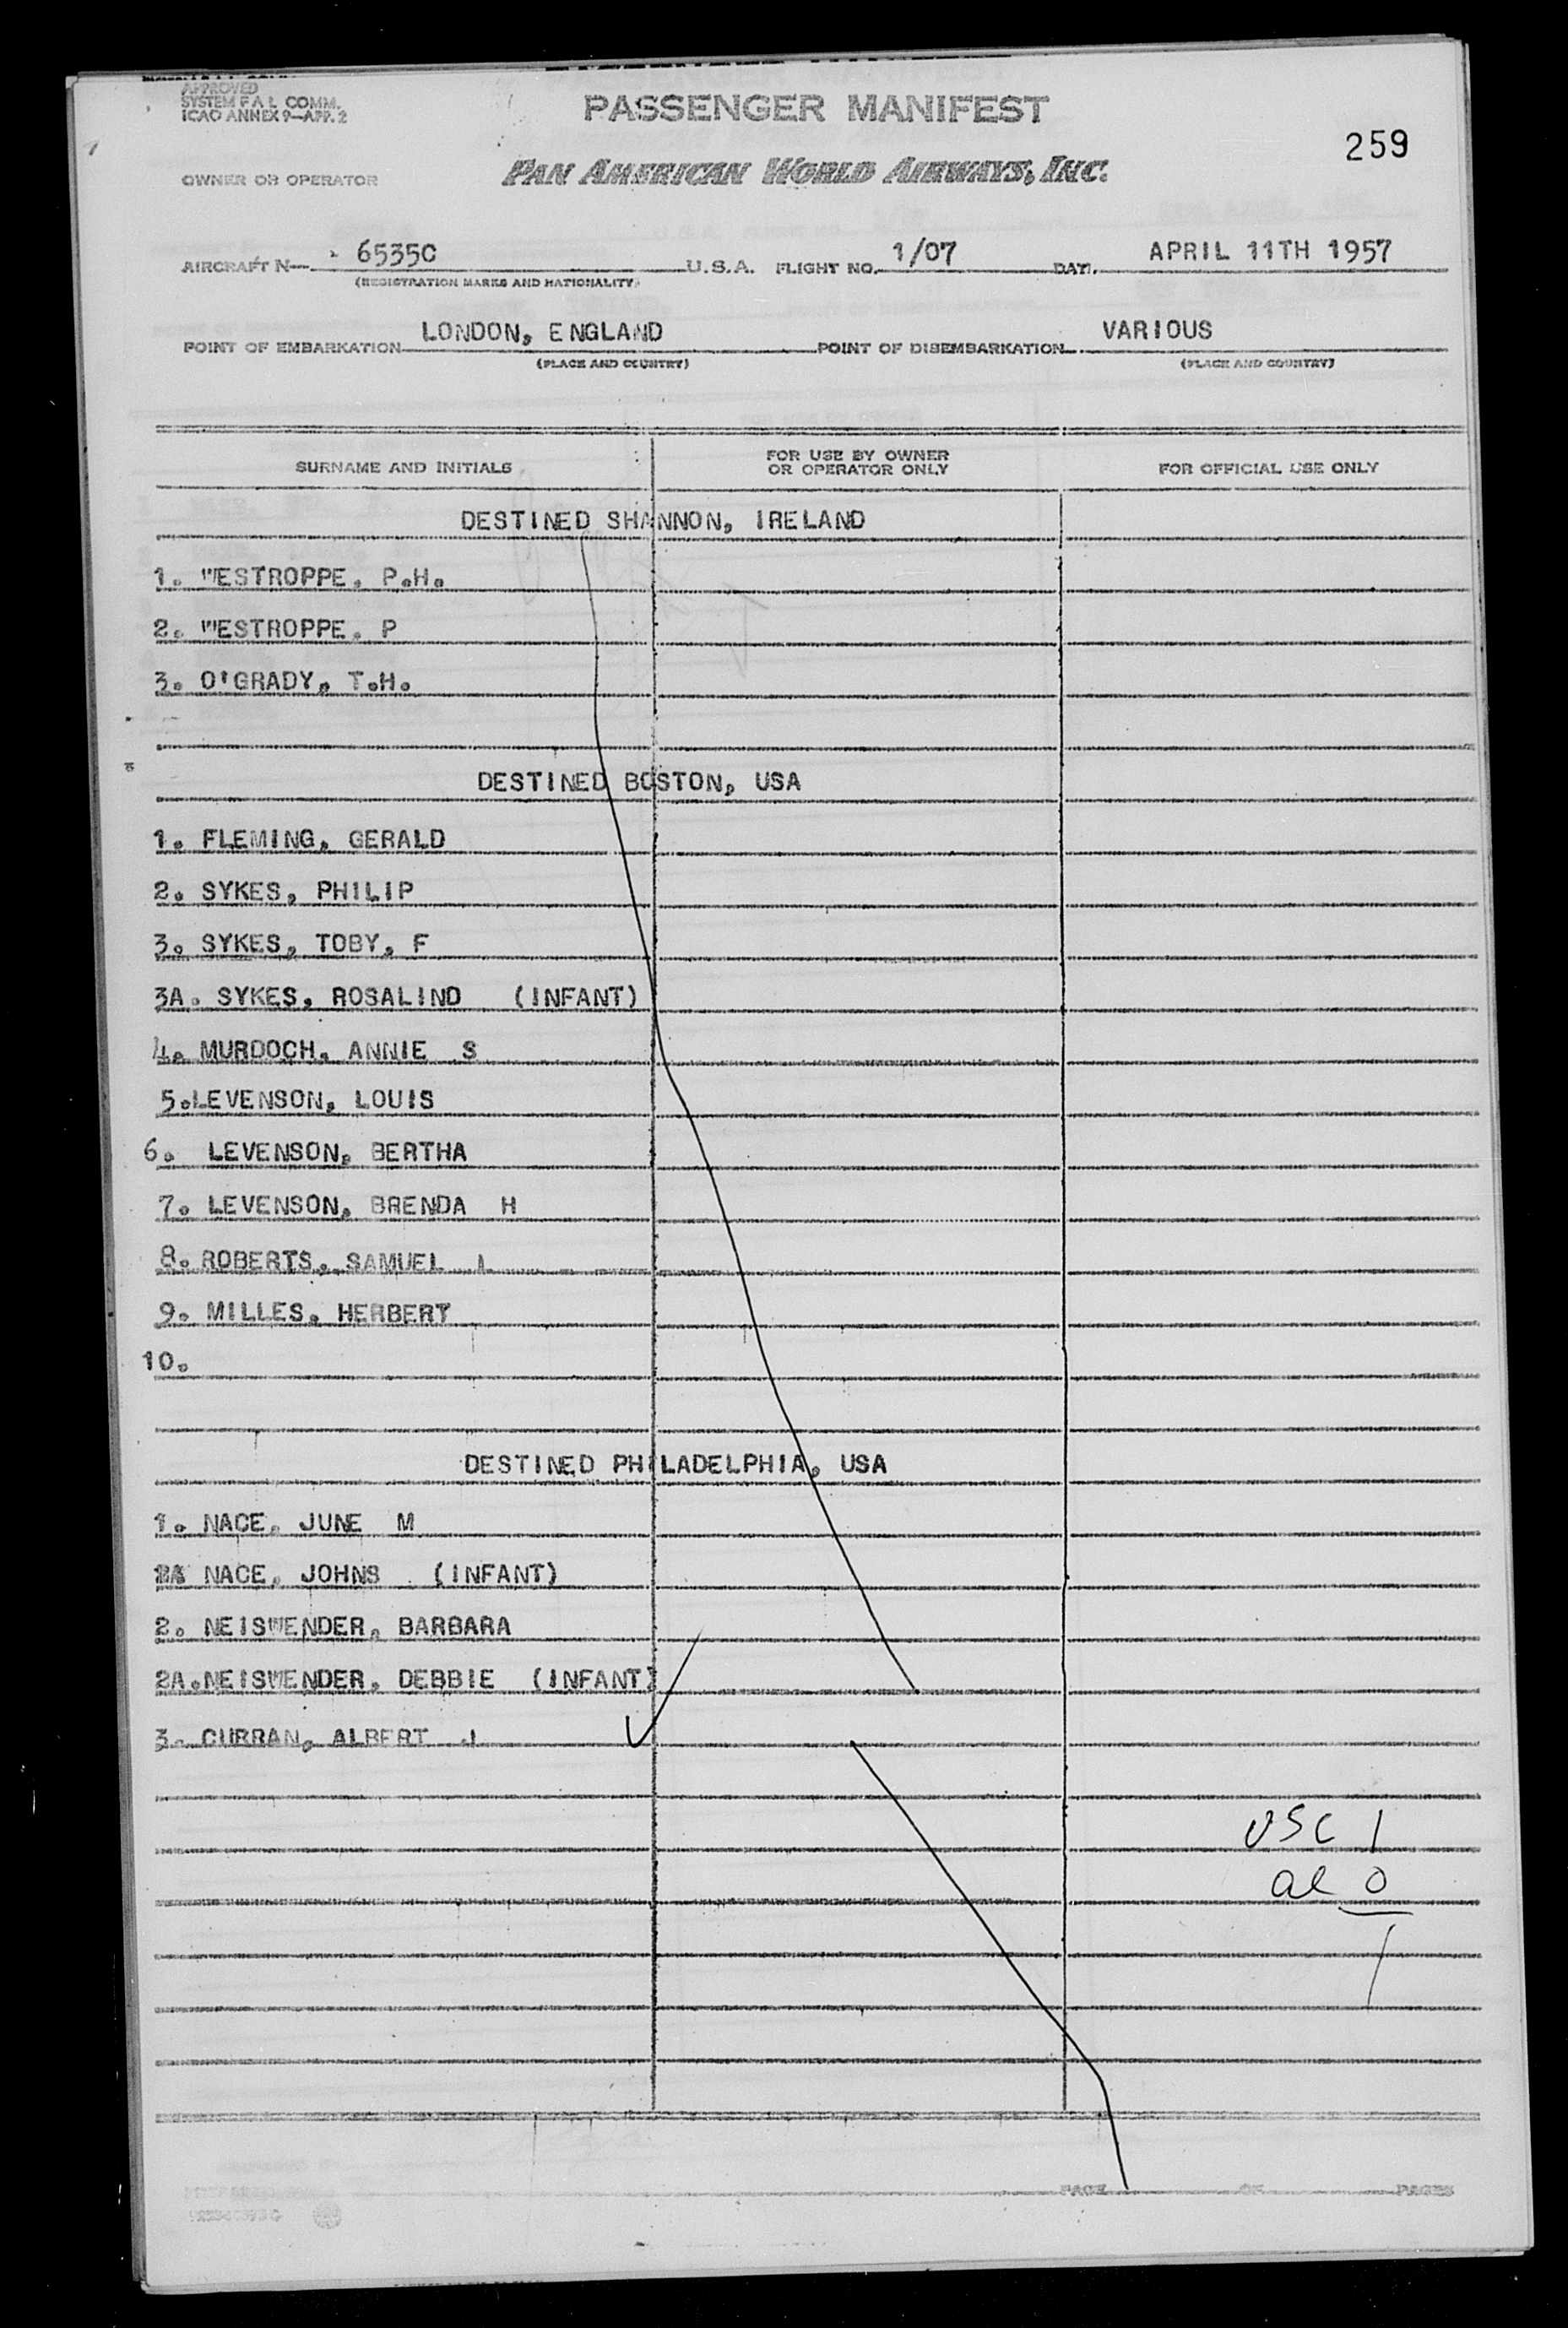 APPROVED
SYSTEM F A L COMM.
ICAO ANNEX 9—APP. 2
PASSENGER MANIFEST
259
PAN AMERICAN WORLD AIRWAYS, INC.
OWNER OR OPERATOR
AIRCRAFT N— 6535C U.S.A. FLIGHT NO. 1/07 DATE APRIL 11TH 1957
(REGISTRATION MARKS AND NATIONALITY)
POINT OF EMBARKATION LONDON, ENGLAND POINT OF DISEMBARKATION VARIOUS
(PLACE AND COUNTRY) (PLACE AND COUNTRY)
SURNAME AND INITIALS FOR USE BY OWNER OR OPERATOR ONLY FOR OFFICIAL USE ONLY
DESTINED SHANNON, IRELAND
1. WESTROPPE, P.H.
2. WESTROPPE, P
3. O'GRADY, T.H.
DESTINED BOSTON, USA
1. FLEMING, GERALD
2. SYKES, PHILIP
3. SYKES, TOBY, F
3A. SYKES, ROSALIND (INFANT)
4. MURDOCH, ANNIE S
5.LEVENSON, LOUIS
6. LEVENSON, BERTHA
7. LEVENSON, BRENDA H
8. ROBERTS, SAMUEL I
9. MILLES, HERBERT
10.
DESTINED PHILADELPHIA, USA
1. NACE, JUNE M
NACE, JOHNS (INFANT)
2. NEISWENDER, BARBARA
2A.NEISWENDER, DEBBIE (INFANT)
3. CURRAN, ALBERT J
USC 1
al 0
1
PAGE OF PAGES